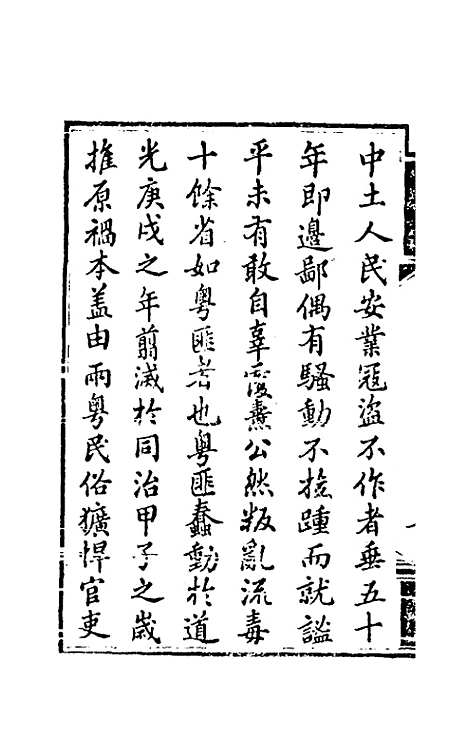 中土人民安業冦盜不作者垂五十
年即邊鄙偶有騷動不旋踵而就謐
平未有敢自辜覆燾公然叛亂流毒
十餘省如粵匪者也粵匪蠢動於道
光庚戌之年翦滅於同治甲子之歲
推原禍本盖由兩粵民俗獷悍官吏